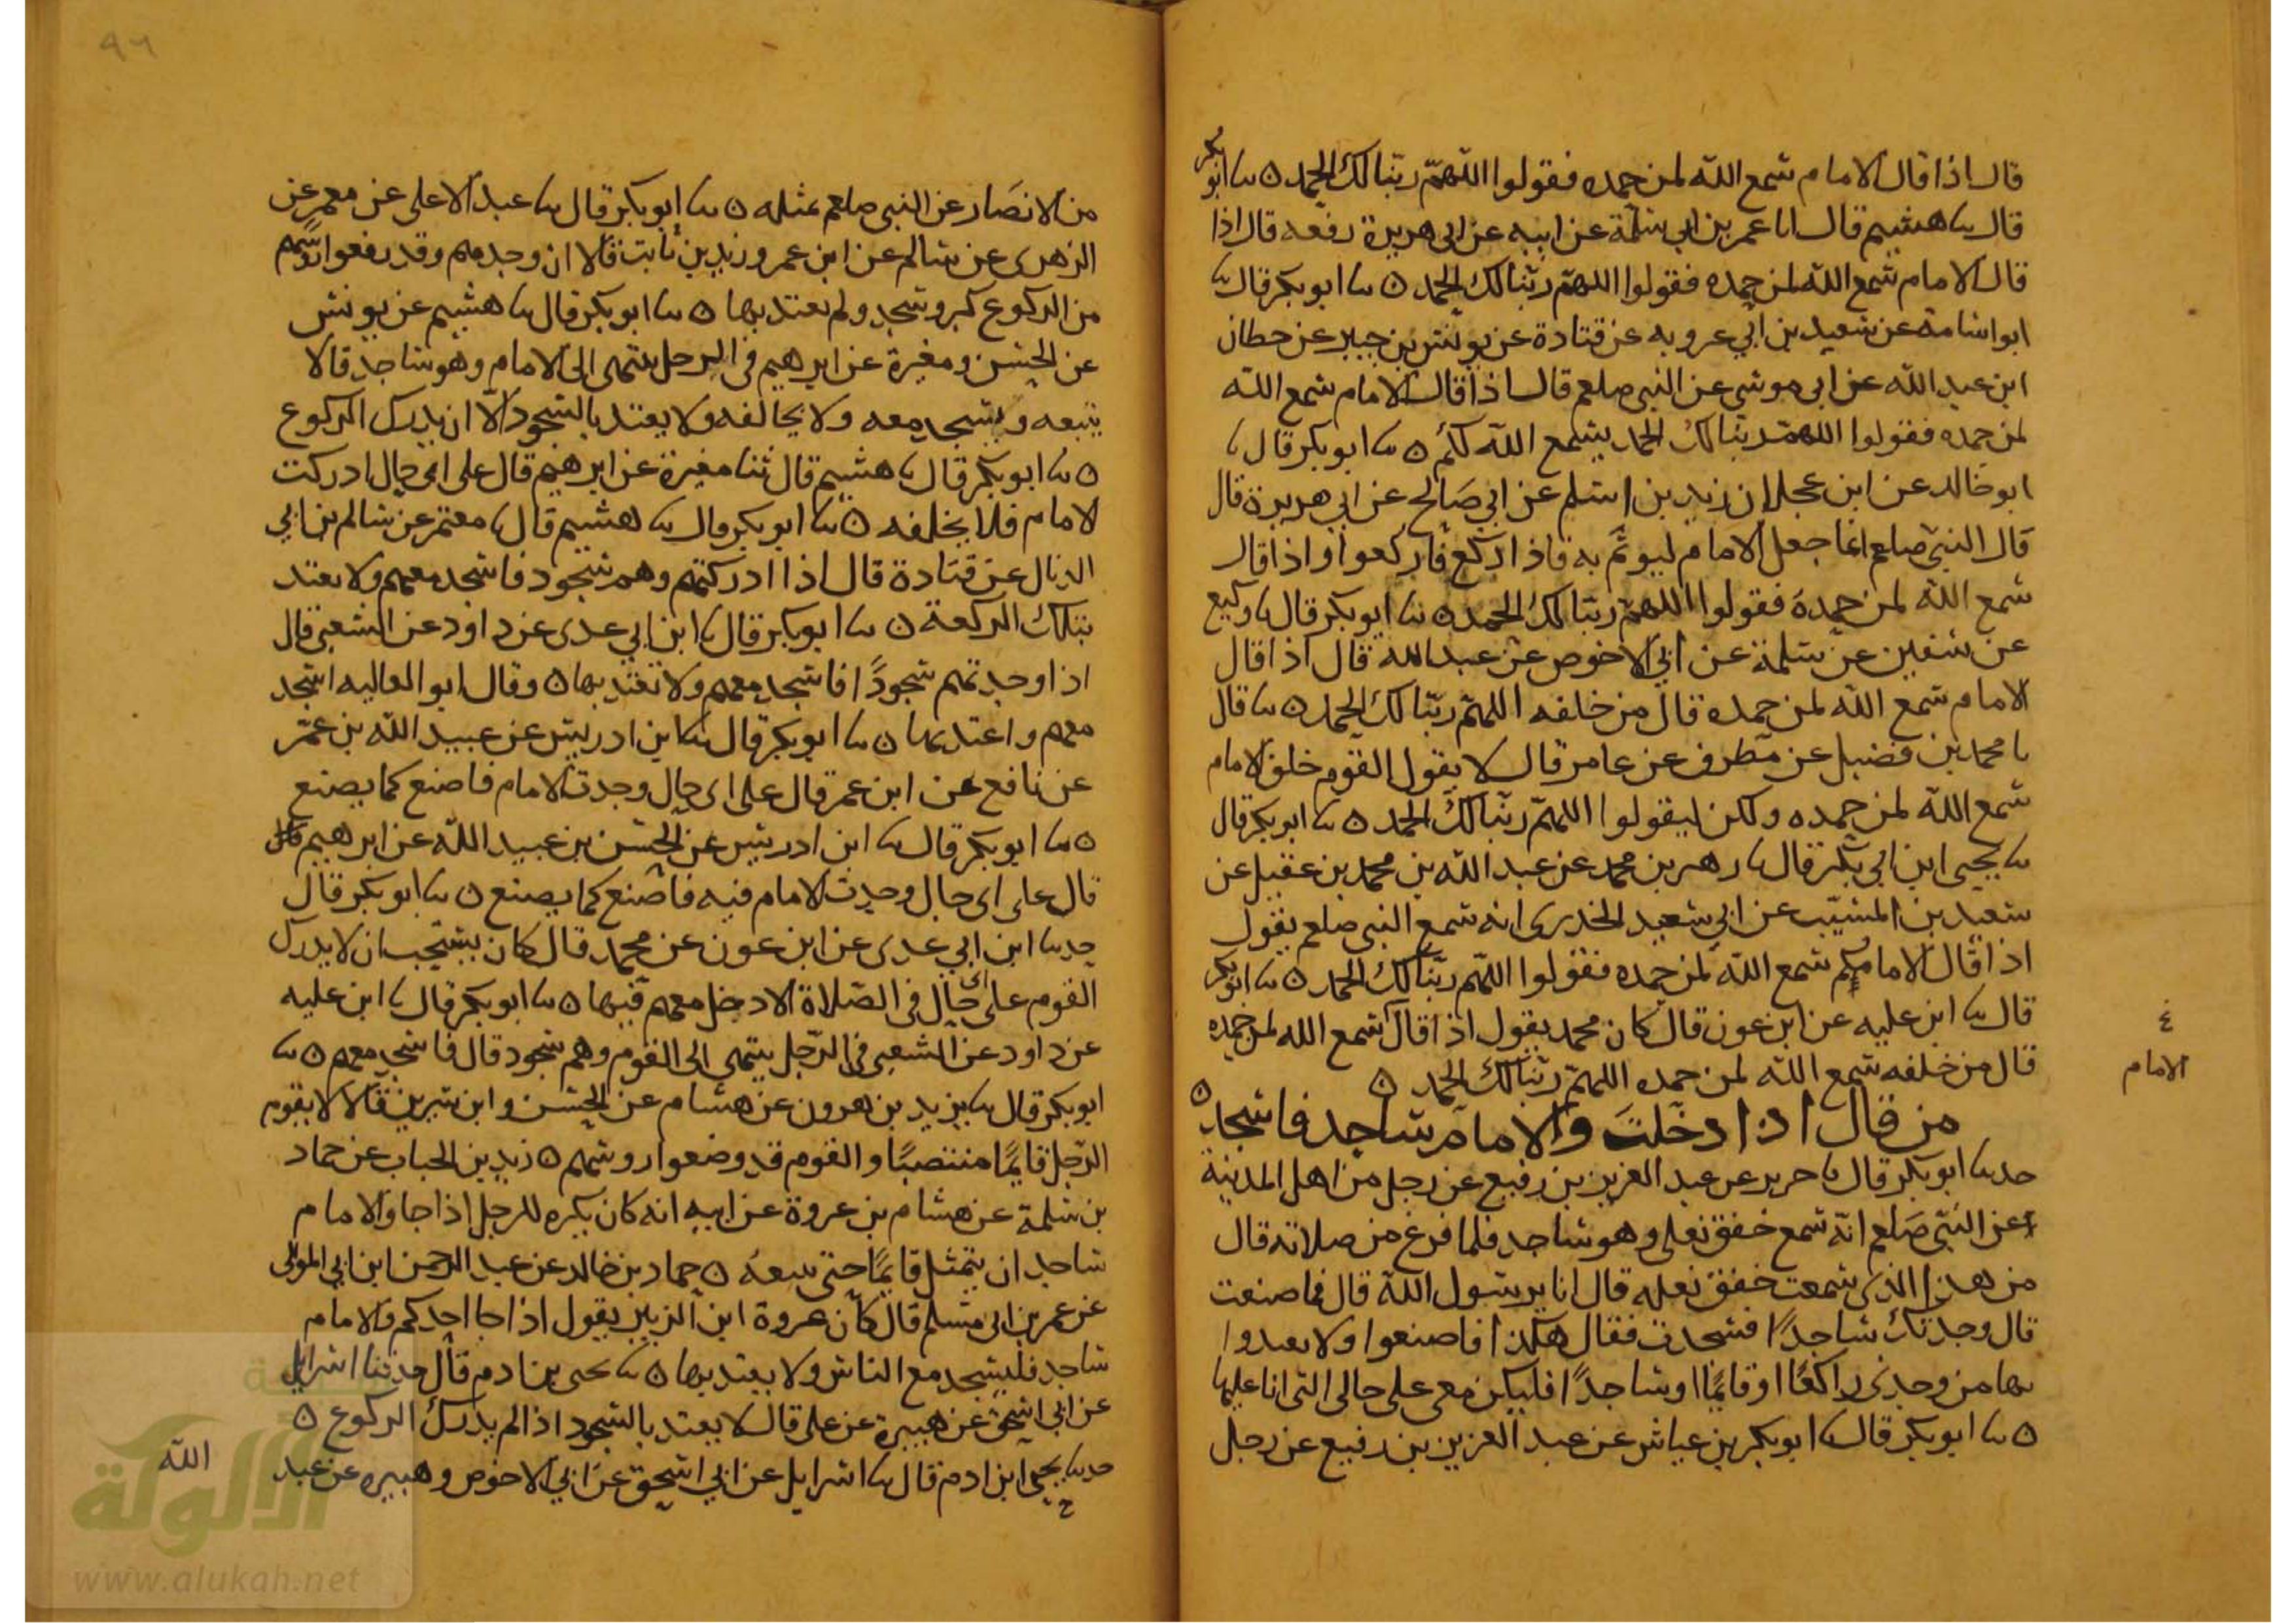 قال اذا قال الامام سمع الله لمن حمده فقولوا اللهم ربنا لك الحمد ۞ ثنا ابو بكر
قال ثنا هشيم قال انا عمر بن ابي سلمة عن ابيه عن ابي هريرة رفعه قال اذا
قال الامام سمع الله لمن حمده فقولوا اللهم ربنا لك الحمد ۞ ثنا ابو بكر قال ثنا
ابو اسامة عن سعيد بن ابي عروبه عن قتادة عن يونس بن جبير عن حطان
ابن عبد الله عن ابي موسى عن النبي صلعم قال اذا قال الامام سمع الله
لمن حمده فقولوا اللهم ربنا لك الحمد يسمع الله لكم ۞ ثنا ابو بكر قال ثنا
ابو خالد عن ابن عجلان زيد بن اسلم عن ابي صالح عن ابي هريرة قال
قال النبي صلعم انما جعل الامام ليوتم به فاذا ركع فاركعوا واذا قال
سمع الله لمن حمده فقولوا اللهم ربنا لك الحمد ۞ ثنا ابو بكر قال ثنا وكيع
عن سفين عن سلمة عن ابي الاحوص عن عبد الله قال اذا قال
الامام سمع الله لمن حمده قال من خلفه اللهم ربنا لك الحمد ۞ ثنا قال
نا محمد بن فضيل عن مطرف عن عامر قال لا يقول القوم خلف الامام
سمع الله لمن حمده ولكن ليقولوا اللهم ربنا لك الحمد ۞ ثنا ابو بكر قال
ثنا يحيى ابن ابي بكر قال ثنا زهير بن محمد عن عبد الله بن محمد بن عقيل عن
سعيد بن المسيب عن ابي سعيد الخدري انه سمع النبي صلعم يقول
اذا قال الامام سمع الله لمن حمده فقولوا اللهم ربنا لك الحمد ۞ ثنا ابو بكر
قال ثنا ابن عليه عن ابن عون قال كان محمد يقول اذا قال سمع الله لمن حمده
قال من خلفه سمع الله لمن حمده اللهم ربنا لك الحمد ۞
الامام
من قال اذا دخلت والامام ساجد فاسجد ۞
حدثنا ابو بكر قال ثنا جرير عن عبد العزيز بن رفيع عن رجل من اهل المدينة
عن النبي صلعم انه سمع خفق نعلي وهو ساجد فلما فرغ من صلاته قال
من هذا الذي سمعت خفق نعله قال انا يرسول الله قال فما صنعت
قال وجدتك ساجدا فسجدت فقال هكذا فاصنعوا ولا تعتدوا
بها من وجدني راكعا او قائما او ساجدا فليكن معي على حالي التي انا عليها
۞ ثنا ابو بكر قال ثنا ابو بكر بن عياش عن عبد العزيز بن رفيع عن رجل
٩٦
من الانصار عن النبي صلعم بمثله ۞ ثنا ابو بكر قال ثنا عبد الاعلى عن معمر عن
الزهري عن سالم عن ابن عمر وزيد بن ثابت قالا ان وجدهم وقد رفعوا رؤسهم
من الركوع كبر وسجد ولم يعتد بها ۞ ثنا ابو بكر قال ثنا هشيم عن يونس
عن الحسن ومغيرة عن ابرهيم في الرجل ينتهى الى الامام وهو ساجد قالا
يتبعه ويسجد معه ولا يخالفه ولا يعتد بالسجود الا ان يدرك الركوع
۞ ثنا ابو بكر قال ثنا هشيم قال ثنا مغيرة عن ابرهيم قال على اي حال ادركت
الامام فلا يخلفه ۞ ثنا ابو بكر قال ثنا هشيم قال ثنا معتمر عن سالم بن ابي
الذيال عن قتادة قال اذا ادركتهم وهم سجود فاسجد معهم ولا تعتد
بتلك الركعة ۞ ثنا ابو بكر قال ثنا ابن ابي عدى عن داود عن الشعبي قال
اذا وجدتهم سجودا فاسجد معهم ولا تعتد بها ۞ وقال ابو العاليه اسجد
معهم واعتد بها ۞ ثنا ابو بكر قال ثنا ابن ادريس عن عبيد الله بن عمر
عن نافع عن ابن عمر قال على اى حال وجدت الامام فاصنع كما يصنع
۞ ثنا ابو بكر قال ثنا ابن ادريس عن الحسن بن عبيد الله عن ابرهيم قال
قال على اى حال وجدت الامام فيه فاصنع كما يصنع ۞ ثنا ابو بكر قال
حدثنا ابن ابي عدى عن ابن عون عن محمد قال كان يستحب ان لا يدرك
القوم على اى حال في الصلاة الا دخل معهم فيها ۞ ثنا ابو بكر قال ثنا ابن عليه
عن داود عن الشعبي في الرجل ينتهى الى القوم وهم سجود قال فاسجد معهم ۞ ثنا
ابو بكر قال ثنا يزيد بن هرون عن هشام عن الحسن وابن سيرين قالا لا يقوم
الرجل قائما منتصبا والقوم قد وضعوا روسهم ۞ زيد بن الحباب عن حماد
بن سلمة عن هشام بن عروة عن ابيه انه كان يكره للرجل اذا جا والامام
ساجد ان يتمثل قائما حتى يتبعه ۞ حماد بن خالد عن عبد الرحمن ابن ابي الموالى
عن عمر بن ابي مسلم قال كان عروة ابن الزبير يقول اذا جا احدكم والامام
ساجد فليسجد مع الناس ولا يعتد بها ۞ ثنا يحيى بن ادم قال حدثنا اسرايل
عن ابي اسحق عن هبيرة عن علي قال لا يعتد بالسجود اذا لم يدرك الركوع ۞
حدثنا يحيى ابن ادم قال ثنا اسرايل عن ابي اسحق عن ابي الاحوص وهبيره عن عبد
الله
الألوكة
www.alukah.net